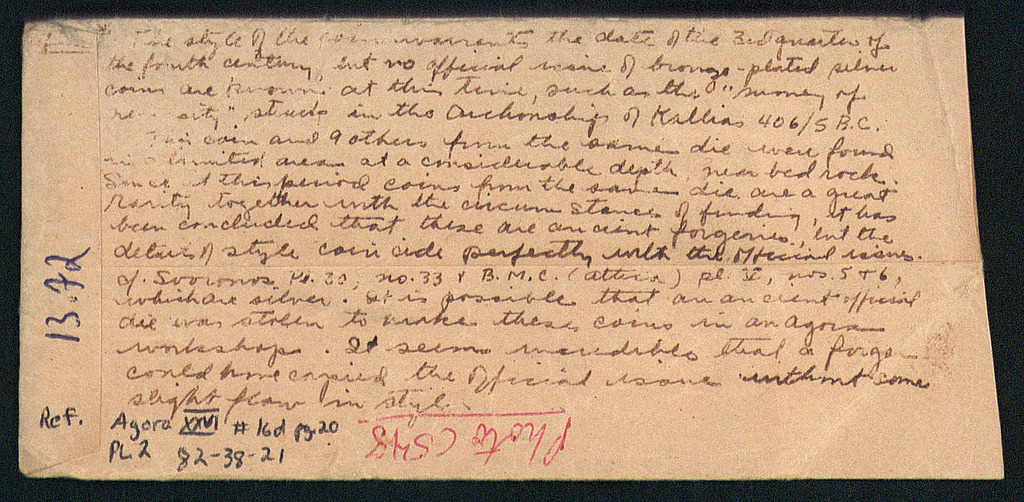 The style of the coin warrants the date of the 3rd quarter of
the fourth century, but no official issue of bronze-plated silver
coins are known at this time, such as the "money of
struck in the Archonship of Kallias 406/5 B.C.
This coin and 9 others from the same die were found
in a limited area at a considerable depth, near bed rock.
Since at this period coins from the same die are a great
rarity together with the circumstances of finding, it has
been concluded that these are ancient forgeries, but the
details of style coincide perfectly with the official issues.
cf. Svoronos, Pl. 30, no. 33 & B.M.C. (Attica) pl. V, nos. 5 & 6,
which are silver. It is possible that an ancient official
die was stolen to make these coins in an Agora
workshop. It seems incredible that a forger
could have copied the official issue without some
slight flaw in style.
13.72
Ref. Agora XXVI # 16d pg. 20
PL 2 82-38-21
Photo C548